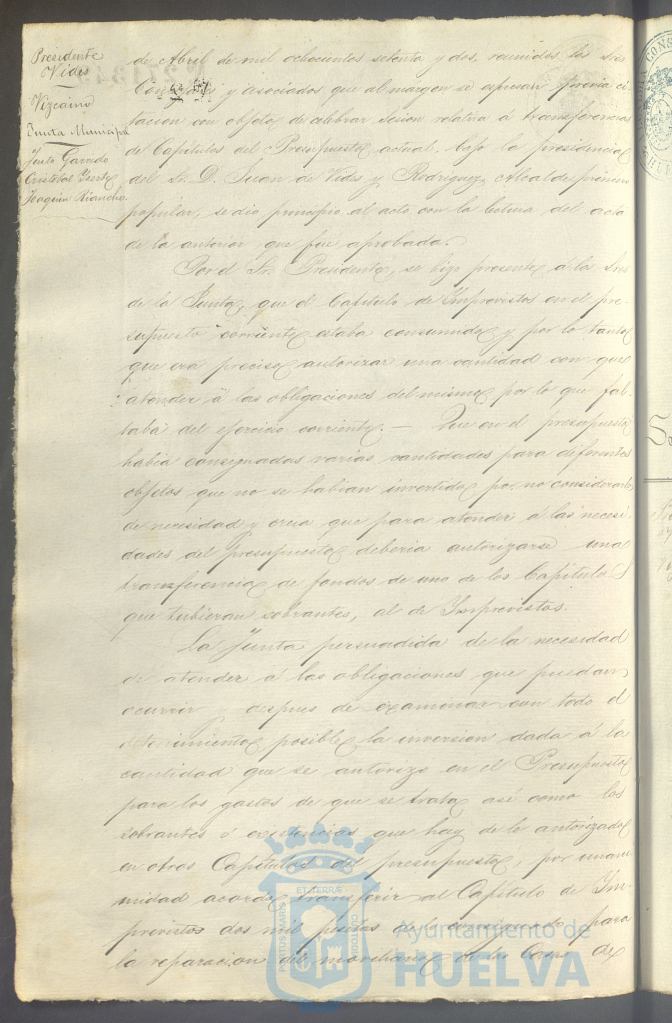 Presidente
Vides
Vizcaino
Junta Municipal
Justo Garrido
Cristobal
Joaquin Riancho
de Abril de mil ochocientos setenta y dos, reunidos los Sres
Concejales y asociados que al margen se espresan previa ci
tacion con objeto de celebrar sesion relativa á transferencias
de Capítulos del Presupuesto actual, bajo la presidencia
del Sr. D. Juan de Vides y Rodriguez, Alcalde primero
popular, se dio principio al acto con la lectura del acta
de la anterior que fue aprobada.
Por el Sr. Presidente, se hizo presente á los Sres
de la Junta, que el Capítulo de Imprevistos en el pre
supuesto corriente estaba consumido y por lo tanto
que era preciso autorizar una cantidad con que
atender á las obligaciones del mismo por lo que fal
taba del ejercicio corriente. — Que en el presupuesto
habia consignadas varias cantidades para diferentes
objetos que no se habian invertido por no considerarlo
de necesidad y creia que para atender á las necesi
dades del presupuesto deberia autorizarse una
transferencia de fondos de uno de los Capítulos
que tubieran sobrantes, al de Imprevistos.
La Junta persuadida de la necesidad
de atender á las obligaciones que puedan
ocurrir y despues de examinar con todo el
detenimiento posible la inversion dada á la
cantidad que se autorizó en el Presupuesto
para los gastos de que se trata así como los
sobrantes ó existencias que hay de lo autorizado
en otros Capítulos del presupuesto, por unani
midad acordó transferir al Capítulo de Im
previstos dos mil pesetas de lo consignado para
la reparacion del mobiliario de las Casas de
PORTUS MARIS
ET TERRÆ
CUSTODIA
Ayuntamiento de
HUELVA